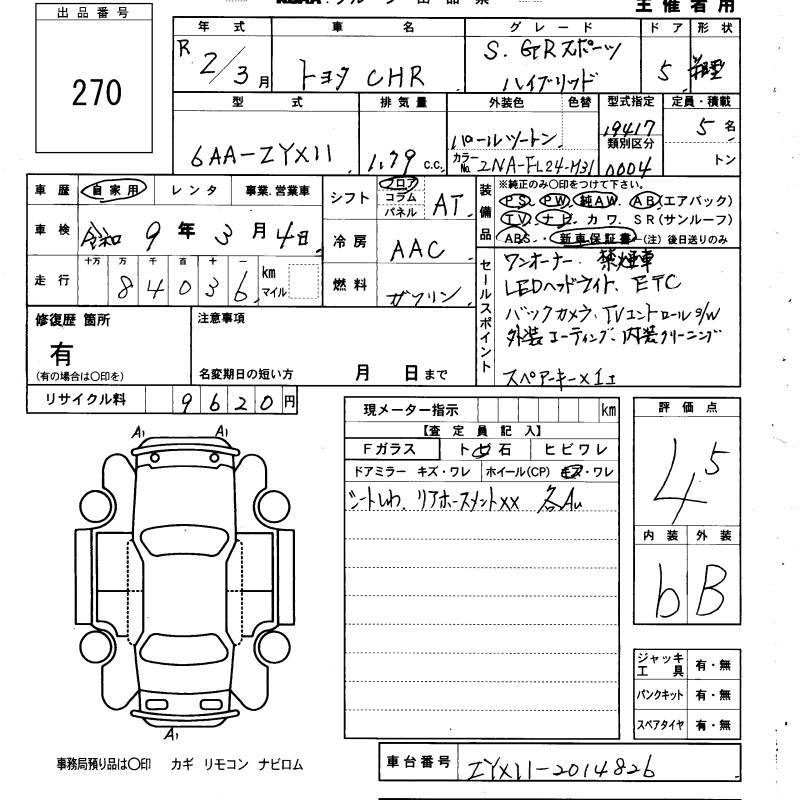 主催者用
出品番号
270
年式 車名 グレード ドア 形状
R 2/3月 トヨタ CHR S. GRスポーツ ハイブリッド 5 箱型
型式 排気量 外装色 色替 型式指定 定員・積載
6AA-ZYX11 1.79 c.c. パールツートン 19417 5名
カラーNo. 2NA-FL24-M31 類別区分 0004 トン
車歴 自家用 レンタ 事業.営業車
車検 令和 9年 3月 4日
走行 十万 万 千 百 十 一
84036 km マイル
シフト フロア コラム パネル AT
冷房 AAC
燃料 ガソリン
装備品 ※純正のみ〇印をつけて下さい。
PS. PW. 純AW. AB(エアバック)
TV. ナビ. カワ. SR(サンルーフ)
ABS. 新車保証書 (注) 後日送りのみ
セールスポイント
ワンオーナー. 禁煙車
LEDヘッドライト、ETC
バックカメラ、TVコントロールs/w
外装コーティング、内装クリーニング
スペアーキー×1コ
修復歴 箇所
有
(有の場合は〇印を)
注意事項
名変期日の短い方 月 日まで
リサイクル料 9620円
現メーター指示 km
【査定員記入】
Fガラス トビ石 ヒビワレ
ドアミラー キズ・ワレ ホイール(CP) キズ・ワレ
シートしわ、リアホースメントXX 各AU
評価点
4.5
内装 外装
b B
A1 A1
A1
ジャッキ工具 有・無
パンクキット 有・無
スペアタイヤ 有・無
事務局預り品は〇印 カギ リモコン ナビロム
車台番号 ZYX11-2014826